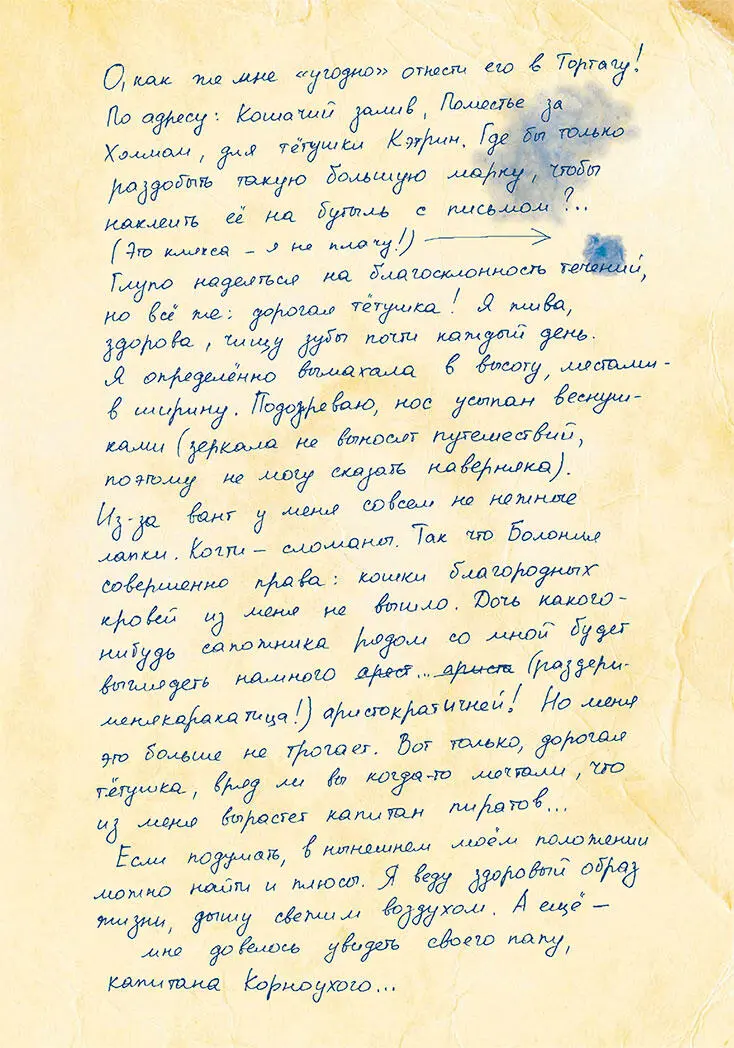 О, как же мне «угодно» отнести его в Тортагу!
По адресу: Кошачий залив, Поместье за
Холмом, для тётушки Кэтрин. Где бы только
раздобыть такую большую марку, чтобы
наклеить её на бутыль с письмом?..
(Это клякса – я не плачу!) →
Глупо надеяться на благосклонность течений,
но всё же: дорогая тётушка! Я жива,
здорова, чищу зубы почти каждый день.
Я определённо вымахала в высоту, местами –
в ширину. Подозреваю, нос усыпан веснуш-
ками (зеркала не выносят путешествий,
поэтому не могу сказать наверняка).
Из-за вант у меня совсем не нежные
лапки. Когти – сломаны. Так что Болония
совершенно права: кошки благородных
кровей из меня не вышло. Дочь какого-
нибудь сапожника рядом со мной будет
выглядеть намного арест... ариста (раздери-
менякаракатица!) аристократичней! Но меня
это больше не трогает. Вот только, дорогая
тётушка, вряд ли вы когда-то мечтали, что
из меня вырастет капитан пиратов...
Если подумать, в нынешнем моём положении
можно найти и плюсы. Я веду здоровый образ
жизни, дышу свежим воздухом. А ещё –
мне довелось увидеть своего папу,
капитана Корноухого...